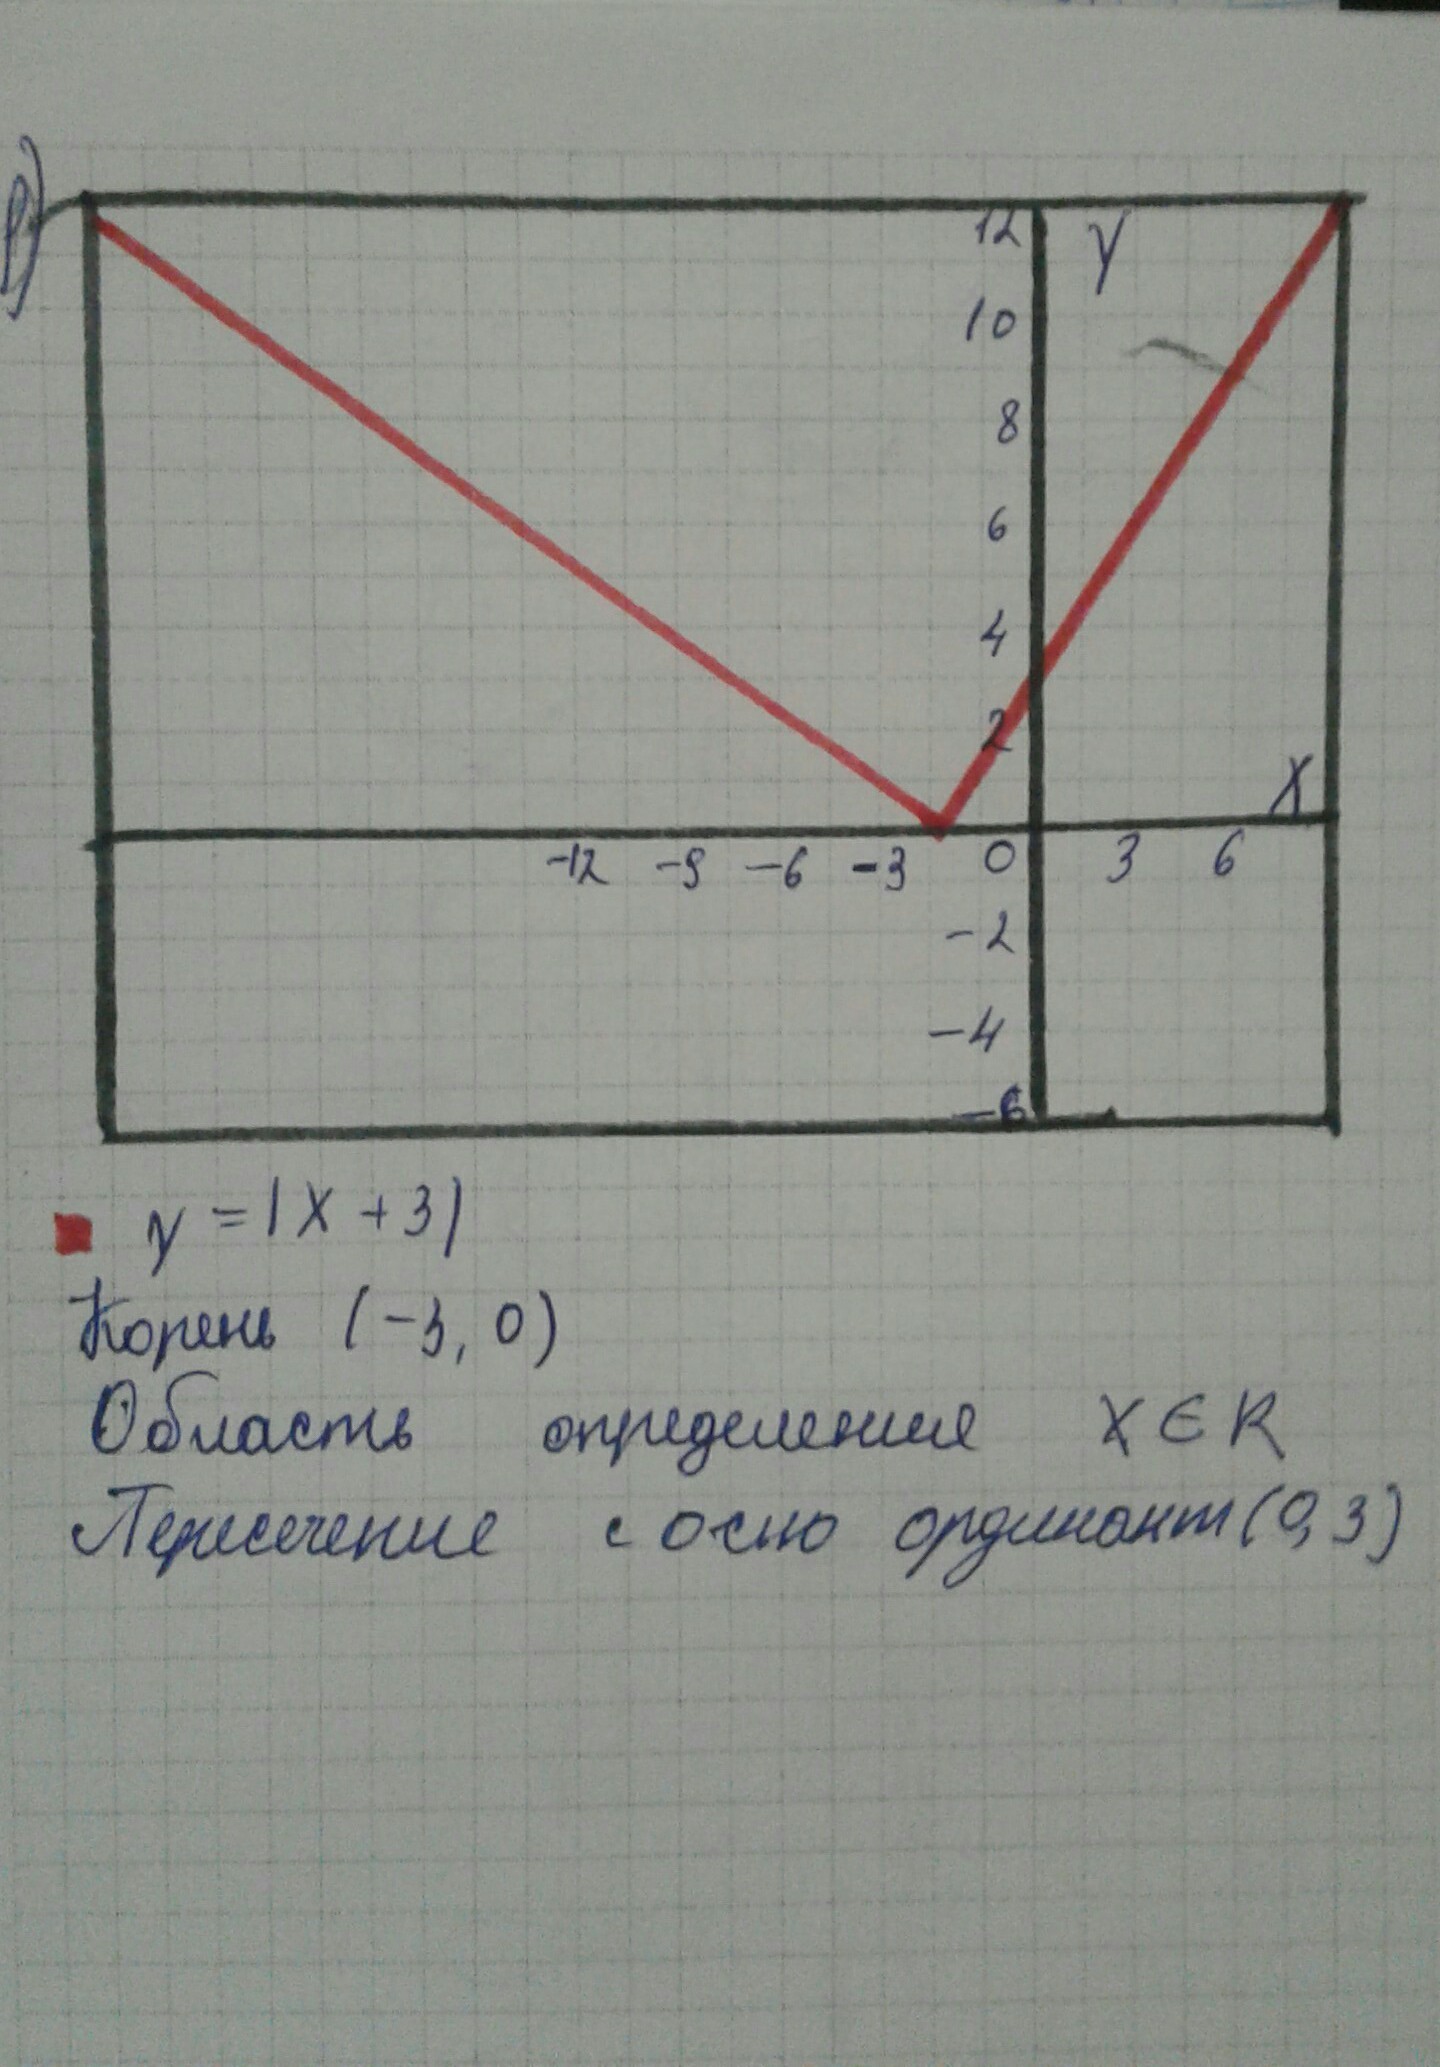 в)
12 y
10
8
6
4
2
x
-12 -9 -6 -3 0 3 6
-2
-4
-6
y = |x + 3|
Корень (-3, 0)
Область определения x ∈ R
Пересечение с осью ординант (0, 3)